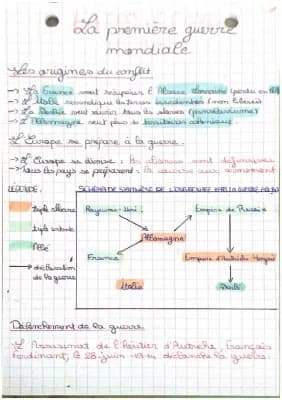 La première guerre
mondiale
Les origines du conflit
→ La France veut récupérer l'Alsace Lorraine (perdu en
→ L'Italie revendique les terres irrédentes (non libérées)
→ La Serbie veut réunir tous les slaves (panslavisme)
→ L'Allemagne veut plus de territoires coloniaux.
L'Europe se prépare à la guerre.
→ L'Europe se divise : les alliances sont défensives
→ Tous les pays se préparent : la course aux armements
LÉGENDE : SCHÉMA SYNTHÈSE DE L'ENGRENAGE VERS LA GUERRE
Triple alliance
Triple entente
Allié
→ déclaration
de la guerre
Royaume-Uni
Empire de Russie
Allemagne
France
Empire d'Autriche Hongrie
Italie
Serbie
Déclenchement de la guerre
L'Assassinat de l'héritier d'Autriche, François
Ferdinant, le 28 juin 1914 déclenche la guerre.